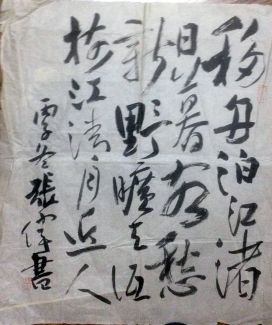 移舟泊江渚
日暮客愁
新野曠天低
树江清月近人
丙子冬張書